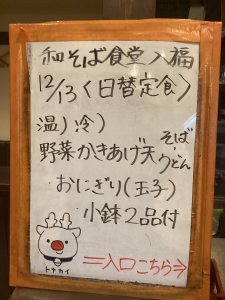 和そば食堂八福
12/13〈日替定食〉
温)冷)
野菜かきあげ天そば・うどん
おにぎり(玉子)
小鉢2品付
トナカイ
⇒入口こちら⇒